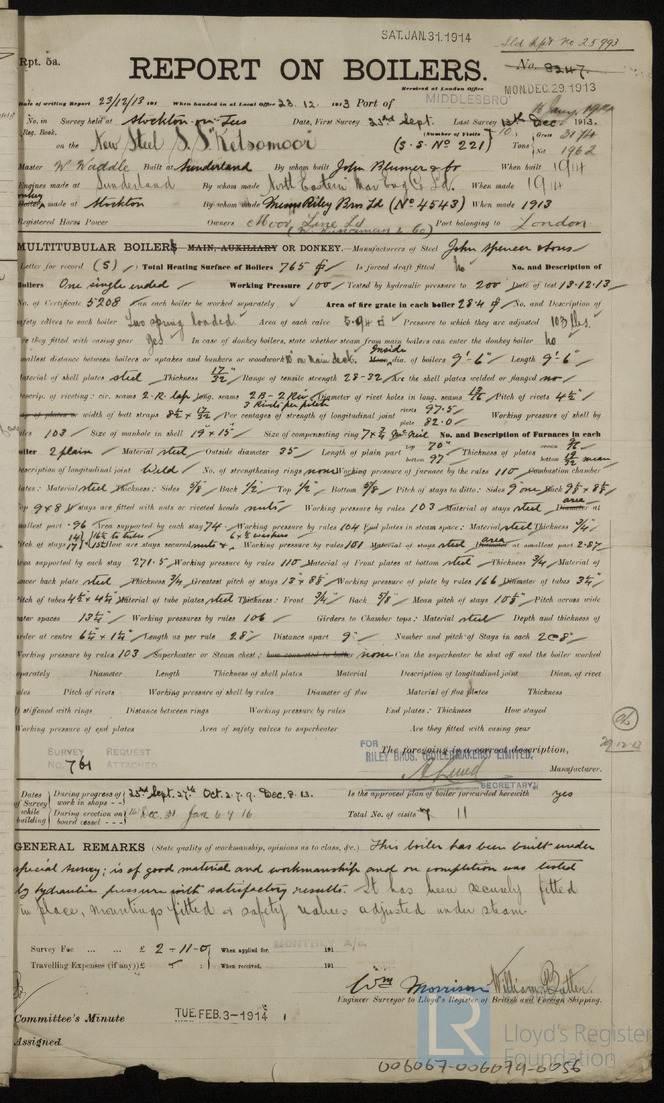 SAT. JAN. 31. 1914
Rpt. 5a.
REPORT ON BOILERS.
No. 8247.
Received at London Office
MON. DEC. 29. 1913
Date of writing Report 23/12/13 191 When handed in at Local Office 23. 12. 1913 Port of MIDDLESBRO'
No. in Survey held at Stockton-on-Tees Date, First Survey 23rd Sept. Last Survey 13th Dec. 1913.
Reg. Book. (Number of Visits 10)
on the New Steel S.S. "Kelsomoor" (S.S. No 221) Tons Gross 3174 Net 1962
Master W. Waddle Built at Sunderland By whom built John Blumer & Co When built 1914
Engines made at Sunderland By whom made North Eastern Mar Eng Co Ld. When made 1914
Donkey Boiler made at Stockton By whom made Messrs Riley Bros Ld (No 4543) When made 1913
Registered Horse Power Owners Moor Line Ld Port belonging to London
MULTITUBULAR BOILERS MAIN, AUXILIARY OR DONKEY.—Manufacturers of Steel John Spencer & Sons
Letter for record (S) Total Heating Surface of Boilers 765 Is forced draft fitted No No. and Description of
Boilers One single ended Working Pressure 100 Tested by hydraulic pressure to 200 Date of test 13.12.13
No. of Certificate 5208 Can each boiler be worked separately Area of fire grate in each boiler 28.4 No. and Description of
safety valves to each boiler Two spring loaded Area of each valve 5.94 Pressure to which they are adjusted 103 lbs.
Are they fitted with easing gear yes In case of donkey boilers, state whether steam from main boilers can enter the donkey boiler no
Smallest distance between boilers or uptakes and bunkers or woodwork on main deck. Inside dia. of boilers 9'-6" Length 9'-6"
Material of shell plates steel Thickness 17/32 Range of tensile strength 28-32 Are the shell plates welded or flanged no
Descrip. of riveting: cir. seams 2-R. Lap long. seams 2B-2 Riv Diameter of rivet holes in long. seams 13/16 Pitch of rivets 4 1/2
3 Rivets per pitch
width of butt straps 8 3/4 x 17/32 Per centages of strength of longitudinal joint rivets 97.5 plate 82.0 Working pressure of shell by
rules 103 Size of manhole in shell 19" x 15" Size of compensating ring 7 x 3/4 McNeil No. and Description of Furnaces in each
boiler 2 plain Material steel Outside diameter 35" Length of plain part top 70" bottom 97" Thickness of plates
Description of longitudinal joint Weld No. of strengthening rings none Working pressure of furnace by the rules 110 Combustion chamber
plates: Material steel Thickness: Sides 5/8 Back 1/2 Top 1/2 Bottom 5/8 Pitch of stays to ditto: Sides 9 one Back 9 1/2 x 8 1/2
Top 9 x 8 If stays are fitted with nuts or riveted heads nuts Working pressure by rules 103 Material of stays steel area at
smallest part .96 Area supported by each stay 74 Working pressure by rules 104 End plates in steam space: Material steel Thickness 3/4
Pitch of stays How are stays secured nuts & washers Working pressure by rules 101 Material of stays steel area at smallest part 2.87
Area supported by each stay 271.5 Working pressure by rules 110 Material of Front plates at bottom steel Thickness 3/4 Material of
Lower back plate steel Thickness 3/4 Greatest pitch of stays 13 x 8 1/2 Working pressure of plate by rules 166 Diameter of tubes 3 1/4
Pitch of tubes 4 1/2 x 4 1/2 Material of tube plates steel Thickness: Front 3/4 Back 5/8 Mean pitch of stays 10 1/8 Pitch across wide
water spaces 13 1/2 Working pressures by rules 106 Girders to Chamber tops: Material steel Depth and thickness of
girder at centre 6 1/2 x 1 1/4 Length as per rule 28" Distance apart 9" Number and pitch of Stays in each 2 @ 8"
Working pressure by rules 103 Superheater or Steam chest; how connected to boiler none Can the superheater be shut off and the boiler worked
separately Diameter Length Thickness of shell plates Material Description of longitudinal joint Diam. of rivet
holes Pitch of rivets Working pressure of shell by rules Diameter of flue Material of flue plates Thickness
If stiffened with rings Distance between rings Working pressure by rules End plates: Thickness How stayed
Working pressure of end plates Area of safety valves to superheater Are they fitted with easing gear
SURVEY REQUEST
No. 761 ATTACHED
The foregoing is a correct description,
FOR RILEY BROS. (BOILERMAKERS) LIMITED.
Manufacturer.
SECRETARY
29.12.13
Dates of Survey while building
During progress of work in shops - - 23rd Sept. 27th Oct. 2. 7. 9. Dec. 8. 13.
Is the approved plan of boiler forwarded herewith yes
During erection on board vessel - - - Dec. 31 Jan 6 9 16
Total No. of visits 11
GENERAL REMARKS (State quality of workmanship, opinions as to class, &c.) This boiler has been built under
special survey; is of good material and workmanship and on completion was tested
by hydraulic pressure with satisfactory results. It has been securely fitted
in place, mountings fitted & safety valves adjusted under steam.
Survey Fee ... ... £ 2 - 11 - 0 When applied for, 191
Travelling Expenses (if any) £ When received, 191
Wm Morrison William Butler.
Engineer Surveyor to Lloyd's Register of British and Foreign Shipping.
Committee's Minute TUE. FEB. 3 - 1914
Assigned
LR Lloyd's Register Foundation
006067-006079-0056